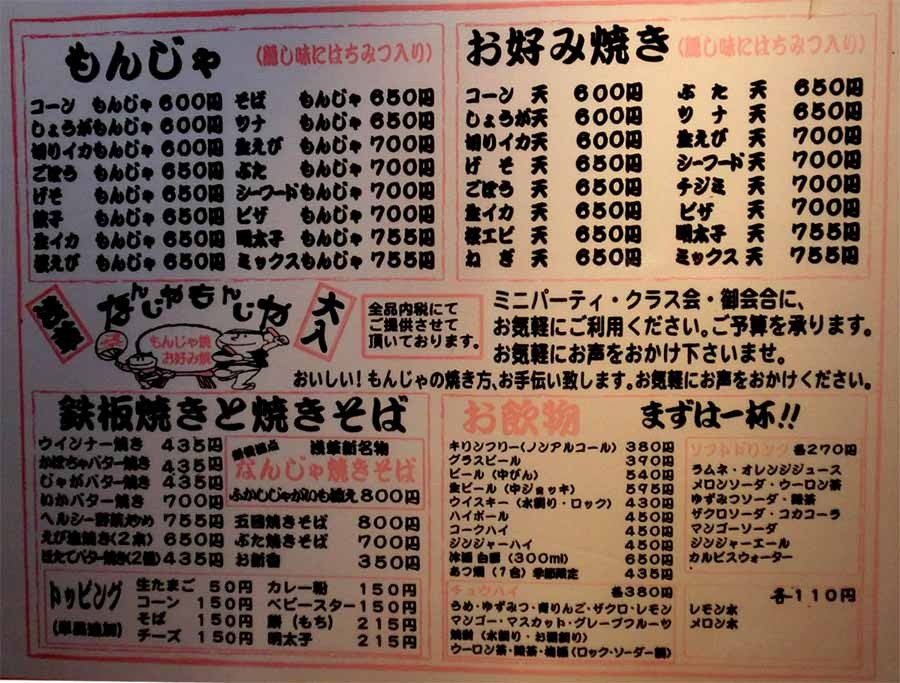 もんじゃ (隠し味にはちみつ入り)
コーン もんじゃ 600円
しょうがもんじゃ 600円
切りイカもんじゃ 600円
ごぼう もんじゃ 650円
げそ もんじゃ 650円
餃子 もんじゃ 650円
生イカ もんじゃ 650円
桜えび もんじゃ 650円
そば もんじゃ 650円
ツナ もんじゃ 650円
生えび もんじゃ 700円
ぶた もんじゃ 700円
シーフードもんじゃ 700円
ピザ もんじゃ 700円
明太子 もんじゃ 755円
ミックスもんじゃ 755円
お好み焼き (隠し味にはちみつ入り)
コーン 天 600円
しょうが天 600円
切りイカ天 600円
げそ 天 650円
ごぼう 天 650円
生イカ 天 650円
桜エビ 天 650円
ねぎ 天 650円
ぶた 天 650円
ツナ 天 650円
生えび 天 700円
シーフード天 700円
チジミ 天 700円
ピザ 天 700円
明太子 天 755円
ミックス 天 755円
なんじゃもんじゃ
大入
もんじゃ焼
お好み焼
全品内税にて
ご提供させて
頂いております。
ミニパーティ・クラス会・御会合に、
お気軽にご利用ください。ご予算を承ります。
お気軽にお声をおかけ下さいませ。
おいしい!もんじゃの焼き方、お手伝い致します。お気軽にお声をおかけください。
鉄板焼きと焼きそば
ウインナー焼き 435円
かぼちゃバター焼き 435円
じゃがバター焼き 435円
いかバター焼き 700円
ヘルシー野菜炒め 755円
えび塩焼き(2本) 650円
ほたてバター焼き(2個) 435円
浅草新名物
なんじゃ焼きそば
ふかしじゃがいも添え 800円
五目焼きそば 800円
ぶた焼きそば 700円
お新香 350円
トッピング
(単品追加)
生たまご 50円
コーン 150円
そば 150円
チーズ 150円
カレー粉 150円
ベビースター 150円
餅(もち) 215円
明太子 215円
お飲物 まずは一杯!!
キリンフリー(ノンアルコール) 380円
グラスビール 390円
ビール(中びん) 540円
生ビール(中ジョッキ) 595円
ウイスキー(水割り・ロック) 430円
ハイボール 450円
コークハイ 450円
ジンジャーハイ 450円
冷酒 白鷹(300ml) 650円
あつ燗(1合)季節限定 435円
チュウハイ 各380円
うめ・ゆずみつ・青りんご・ザクロ・レモン
マンゴー・マスカット・グレープフルーツ
焼酎(水割り・お湯割り)
ウーロン茶・緑茶・梅酒(ロック・ソーダー割)
ソフトドリンク 各270円
ラムネ・オレンジジュース
メロンソーダ・ウーロン茶
ゆずみつソーダ・緑茶
ザクロソーダ・コカコーラ
マンゴーソーダ
ジンジャーエール
カルピスウォーター
各110円
レモン水
メロン水